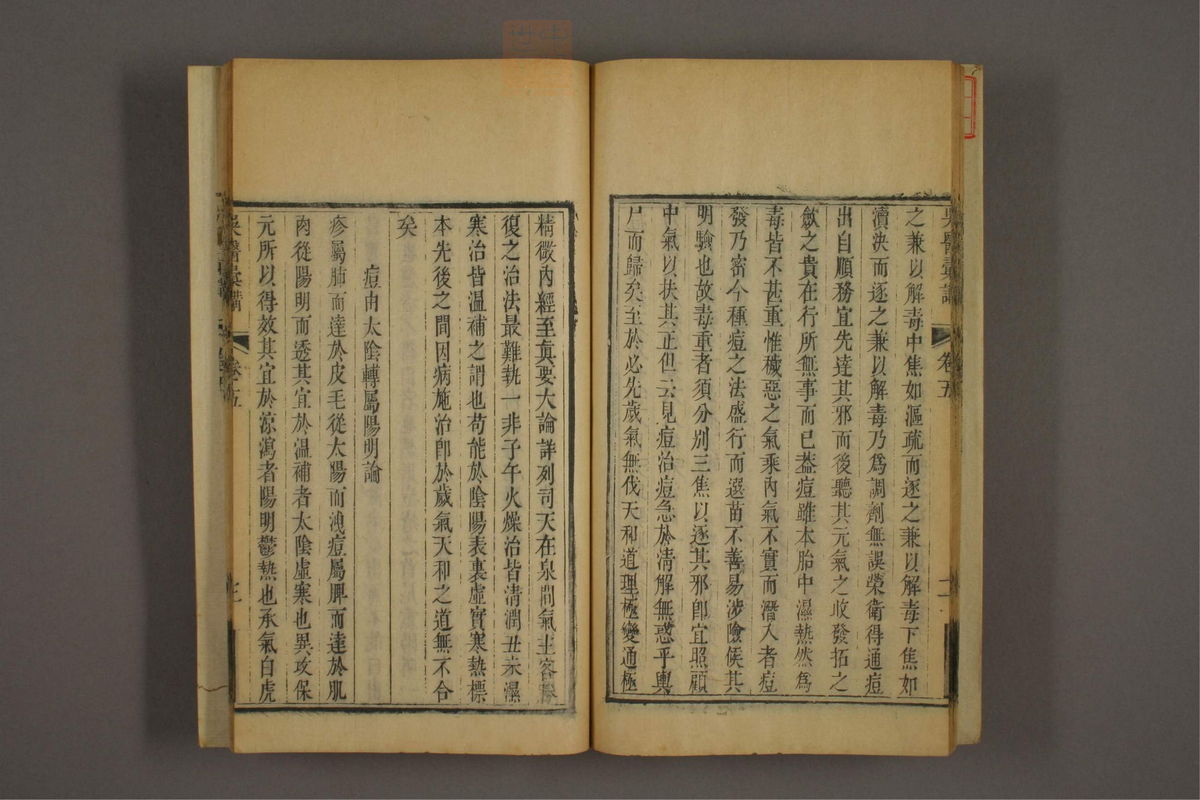 吳醫彙講 卷五 二
之兼以解毒中焦如漚疏而逐之兼以解毒下焦如
瀆決而逐之兼以解毒乃爲調劑無誤榮衛得通痘
出自順務宜先達其邪而後聽其元氣之收發拓之
歛之貴在行所無事而已葢痘雖本胎中濕熱然爲
毒皆不甚重惟穢惡之氣乘內氣不實而潛入者痘
發乃密今種痘之法盛行而選苗不善易涉險候其
明驗也故毒重者須分别三焦以逐其邪卽宜照顧
中氣以扶其正但云見痘治痘急於淸解無惑乎輿
尸而歸矣至於必先歲氣無伐天和道理極變通極
精微內經至眞要大論詳列司天在泉間氣主客勝
復之治法最難執一非子午火燥治皆淸潤丑未濕
寒治皆温補之謂也苟能於陰陽表裏虛實寒熱標
本先後之間因病施治卽於歲氣天和之道無不合
矣
痘由太陰轉屬陽明論
疹屬肺而達於皮毛從太陽而洩痘屬脾而達於肌
肉從陽明而透其宜於溫補者太陰虛寒也異攻保
元所以得效其宜於涼瀉者陽明鬱熱也承氣白虎
吳醫彙講 卷五 三